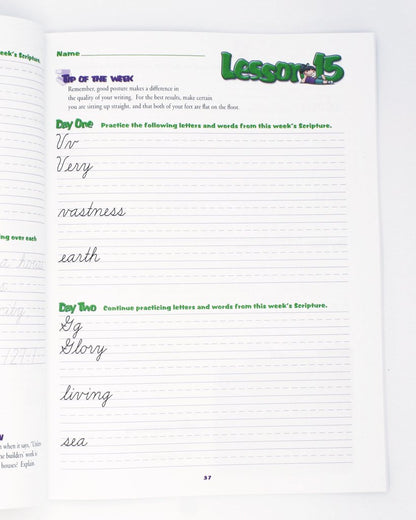 eek's Scripture.
ing over each
127:1
when it says, "Unless
houses? Explain
Name
Lesson 15
Tip of the Week
Remember, good posture makes a difference in
the quality of your writing. For the best results, make certain
you are sitting up straight, and that both of your feet are flat on the floor.
Day One Practice the following letters and words from this week's Scripture.
Vv
Very
vastness
earth
Day Two Continue practicing letters and words from this week's Scripture.
Gg
Glory
living
sea
37